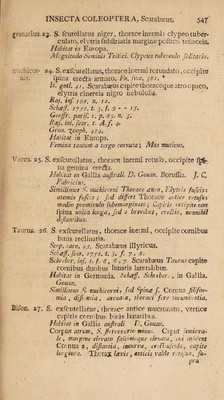 INSECTA COLEOPTERA, Scarabæus. 547
granarius. 23. S. scutellatus niger, thorace inermi, clypeo tuber-
culato, elytris substriatis margine postico testaceis.
Habitat in Europa.
Magnitudo Seminis Tritici. Clypeus tuberculo solitario.
nuchicor-
nis. 24. S. exscutellatus, thorace inermi rotundato, occipite
spina erecta armato. Fn. svec. 381.
It. gotl. 41. Scarabæus capite thoraceque atro opaco,
elytris cinereis nigro nebulosis.
Raj. ins. 108. n. 12.
Habitat in Europa.
Femina tantum a tergo cornuta; Mas muticus.
Vacca. 25. S. exscutellatus, thorace inermi retuso, occipite
spina gemina erecta.
Habitat in Gallia australi. D. Gouan. Borussia. J. C.
Fabricius.
Simillimus S. nuchicorni Thorace æneo, Elytris fuscis:
atomis fuscis; sed differt Thorace antice retusso
medio prominulo submarginato; Capitis occipite non
spina unica longa, sed 2 brevibus, erectis, nonnihil
distantibus.
Taurus. 26. S. exscutellatus, thorace inermi, occipite cornibus
binis reclinatis.
Scop. carn. 25. Scarabæus illyricus.
Schreber. ins. 1. f. 6, 7. Scarabæus Taurus capite
cornibus duobus lunatis lateralibus.
Habitat in Germania. Schæff. Schreber., in Gallia.
Gouan.
Simillimus S. nuchicorni, sed Spinæ s. Cornua filifor-
mia, distantia, arcuata, thoraci fere incumbentia.
Bison. 27. S. exscutellatus, thorace antice mucronato, vertice
capitis cornibus binis lunaribus.
Habitat in Gallia australi. D. Gouan.
Corpus atrum, S. stercorario minus. Caput
margine elevato
Cornua 2, distantia,
Thorax lævis, antice valde retusus,
pra